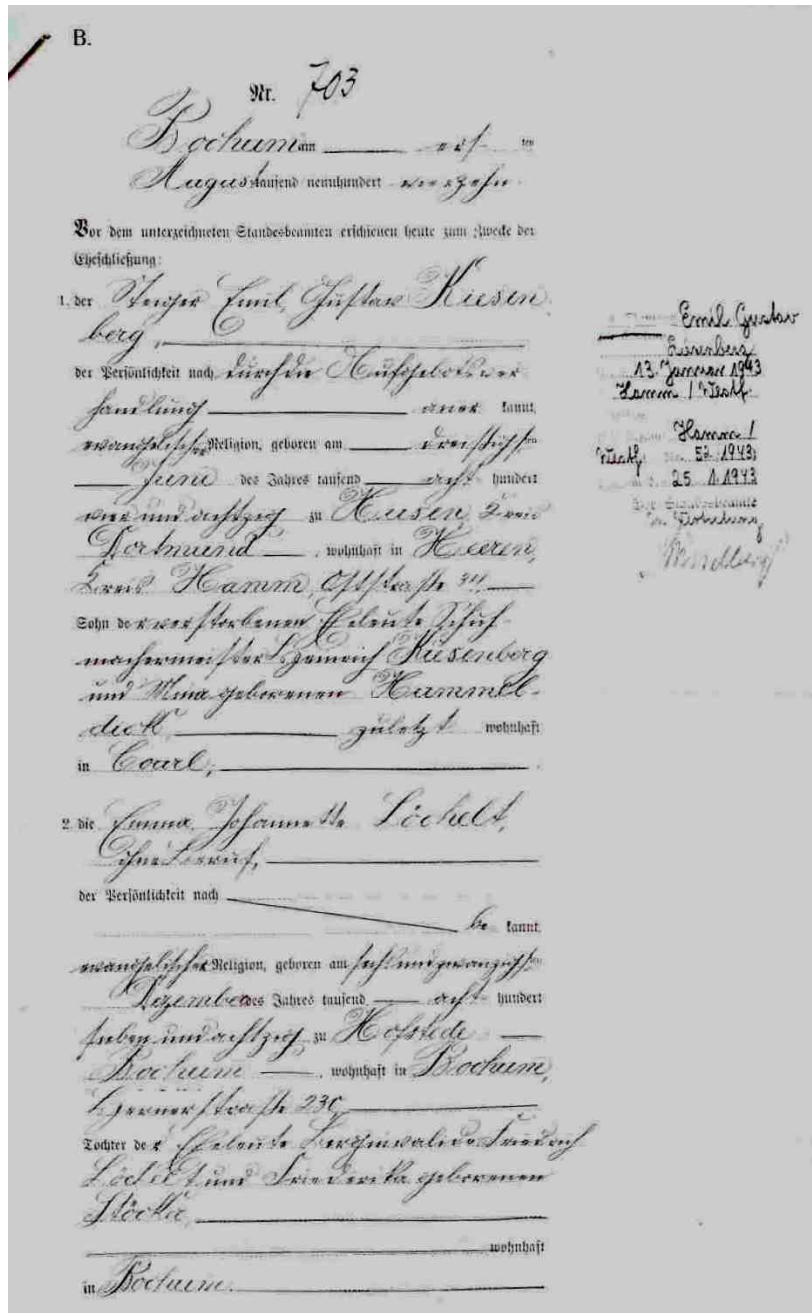 B.
Nr. 703
Bochum am ersten
August tausend neunhundert vierzehn.
Vor dem unterzeichneten Standesbeamten erschienen heute zum Zwecke der
Eheschließung:
1. der Steiger Emil Gustav Kiesen
berg,
der Persönlichkeit nach durch die Aufgebotsver
handlung anerkannt,
evangelischer Religion, geboren am dreißigsten
Juni des Jahres tausend acht hundert
vier und achtzig zu Husen, Kreis
Dortmund, wohnhaft in Heeren,
Kreis Hamm, Oststraße
Sohn der verstorbenen Eheleute Schuh-
machermeister Heinrich Kiesenberg
und Mina geborenen Hammel-
dick, zuletzt wohnhaft
in Courl,
2. die Emma Johannette Löchelt,
ohne Beruf,
der Persönlichkeit nach
bekannt,
evangelischer Religion, geboren am sechsundzwanzigsten
Dezember des Jahres tausend acht hundert
sieben und achtzig, zu Hofstede
Bochum, wohnhaft in Bochum,
Hernerstraße 230,
Tochter der Eheleute Berginvalide Friedrich
Löchelt und Friederika geborenen
wohnhaft
in Bochum.
Emil Gustav
13. Januar 1943
Hamm / Westf.
Hamm /
Westf. 52 1943
25. 1. 1943
Der Standesbeamte